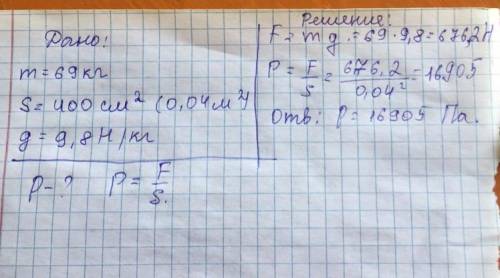 Дано:
m = 69 кг
S = 400 см² (0,04 м²)
g = 9,8 Н/кг
P - ? P = F/S.
Решение:
F = m g = 69 · 9,8 = 676,2 Н
P = F/S = 676,2/0,04² = 16905
Отв: P = 16905 Па.